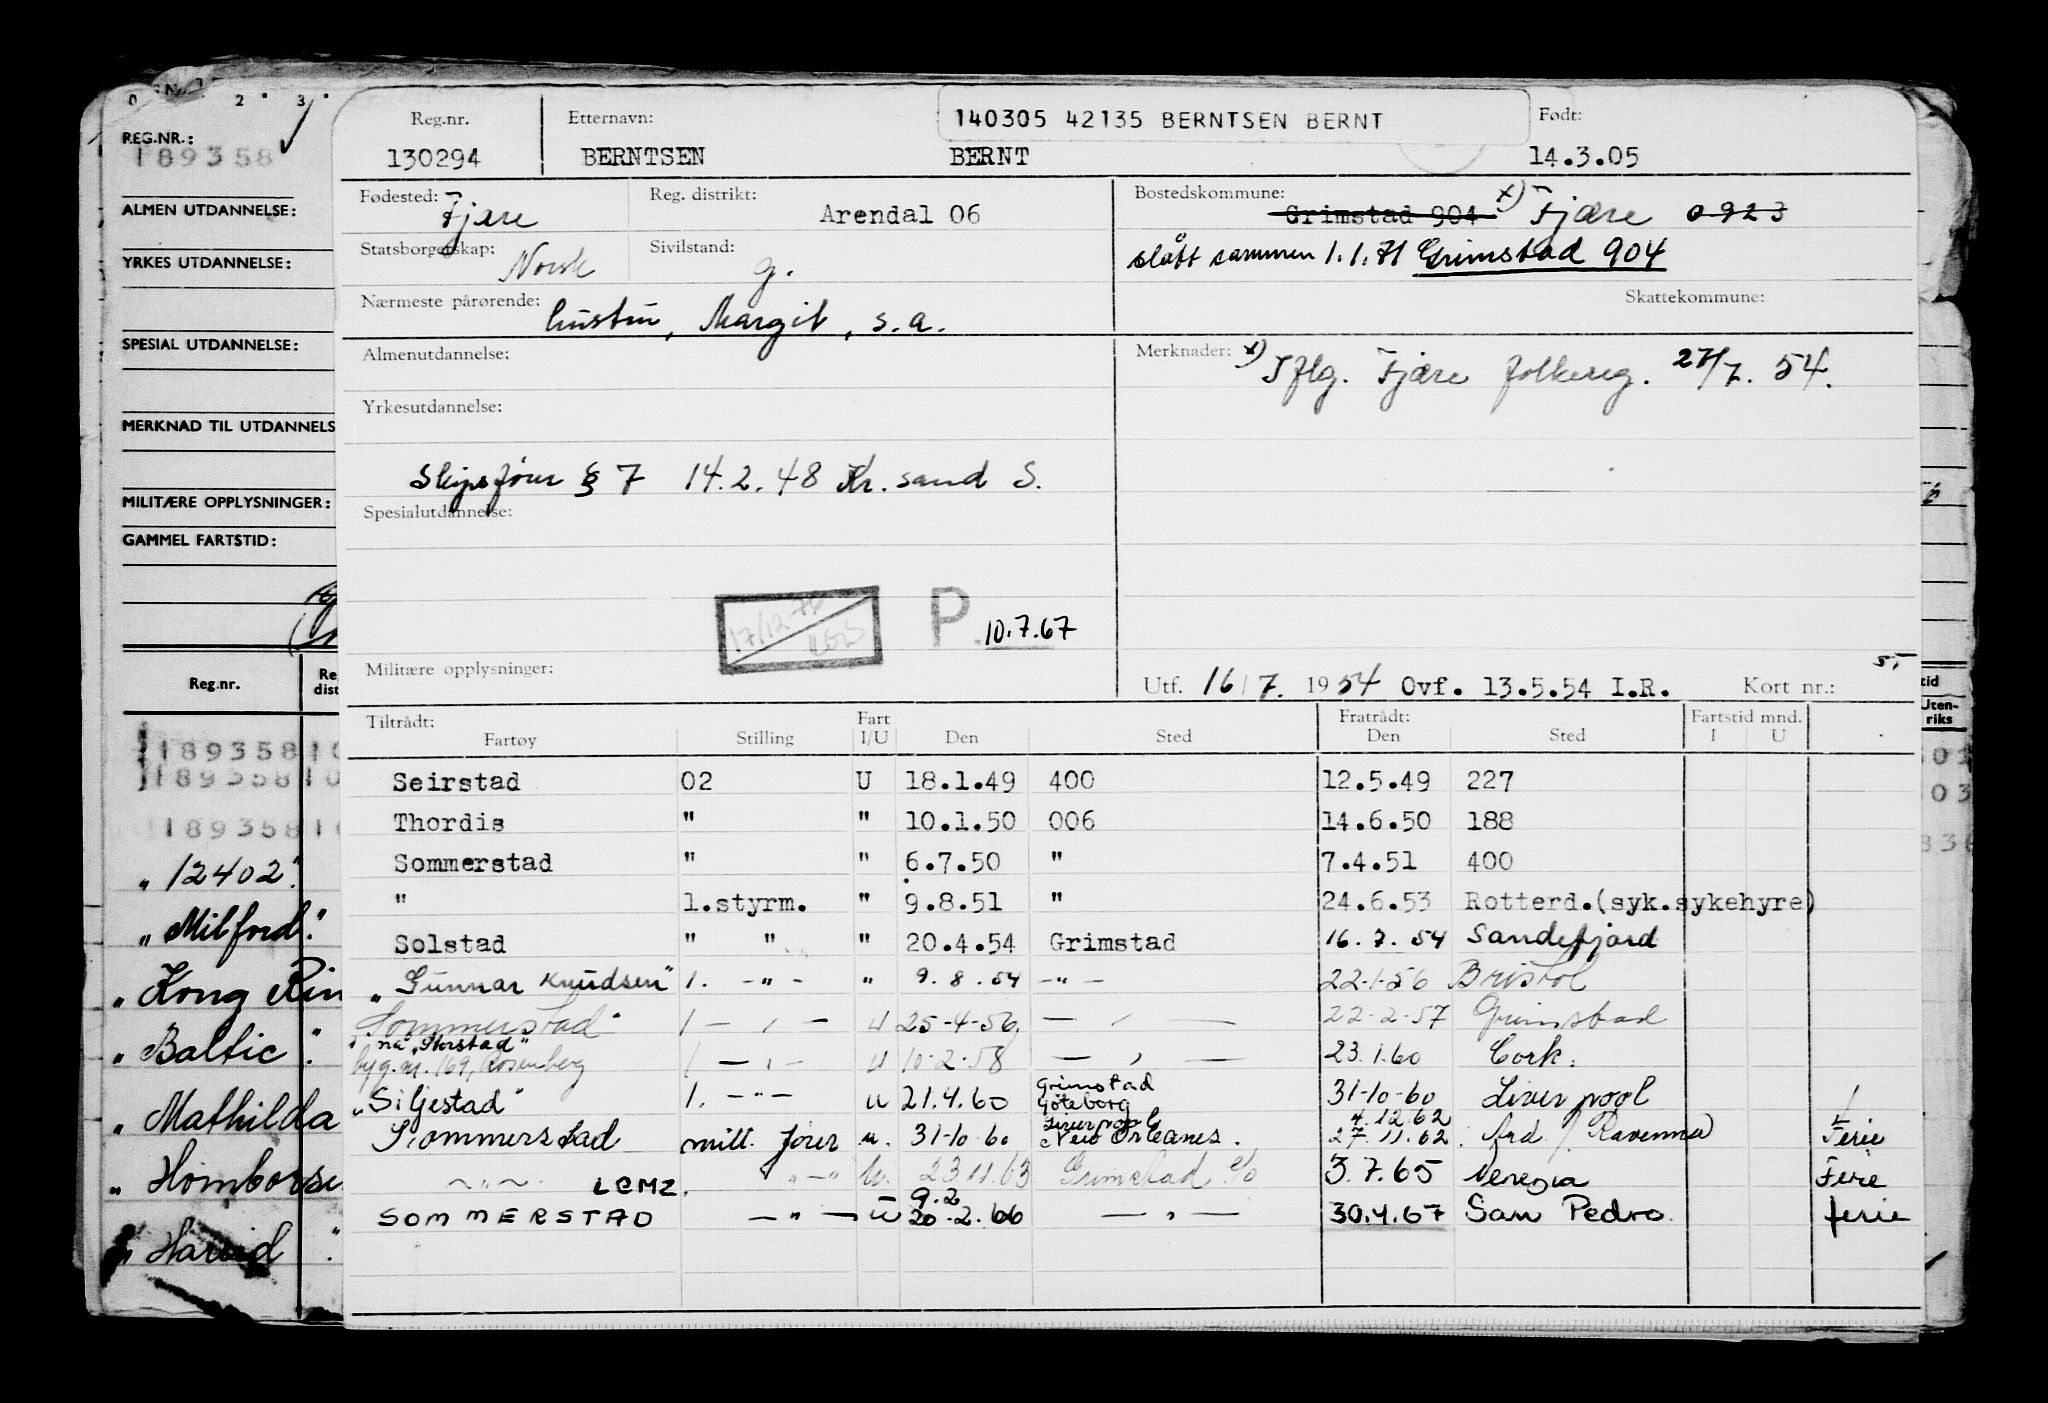 REG.NR.:
189358
ALMEN UTDANNELSE:
YRKES UTDANNELSE:
SPESIAL UTDANNELSE:
MERKNAD TIL UTDANNELS
MILITÆRE OPPLYSNINGER:
GAMMEL FARTSTID:
Reg.nr.
189358
189358
189358
"12402".
"Milford".
"Kong Rin
"Baltic".
"Mathilda
"Homborsu
"Havid"
Reg.nr. Etternavn: 140305 42135 BERNTSEN BERNT Født:
130294 BERNTSEN BERNT 14.3.05
Fødested: Fjære Reg. distrikt: Arendal 06 Bostedskommune: Grimstad 904 x) Fjære 0923
Statsborgerskap: Norsk Sivilstand: g. slått sammen 1.1.71 Grimstad 904
Nærmeste pårørende: hustru, Margit, s.a. Skattekommune:
Almenutdannelse: Merknader: x) Iflg. Fjære folkereg. 27/7. 54.
Yrkesutdannelse:
Skipsfører § 7 14.2.48 Kr.sand S.
Spesialutdannelse:
17/12-70
P. 10.7.67
Militære opplysninger: Utf. 16/7. 1954 Ovf. 13.5.54 I.R. Kort nr.:
Tiltrådt: Fart Fratrådt: Fartstid mnd.
Fartøy Stilling I/U Den Sted Den Sted I U
Seirstad 02 U 18.1.49 400 12.5.49 227
Thordis " " 10.1.50 006 14.6.50 188
Sommerstad " " 6.7.50 " 7.4.51 400
" 1.styrm. " 9.8.51 " 24.6.53 Rotterd.(syk.sykehyre)
Solstad " " " 20.4.54 Grimstad 16.7.54 Sandefjord
"Gunnar Knudsen" 1. -"- " 9.8.54 -"- 22-1-56 Bristol
Sommerstad" 1 - " - U 25-4-56 - " - 22-2-57 Grimstad
nå "Storstad"
byg.nr. 169, Rosenberg 1 - " - U 10-2-58 - " - 23.1.60 Cork.
"Siljestad" 1. -"- U 21.4.60 Grimstad Göteborg 31-10-60 Liverpool
Sommerstad midl. fører u. 31-10-60 Liverpool New Orleans. 4.12.62 27.11.62. Ard / Ravenna Ferie
~ " ~ LCMZ. " -"- U. 23.11.63 Grimstad 3.7.65 Venezia Ferie
SOMMERSTAD - " - U 9.2 20-2.66 - " - 30.4.67 San Pedro. ferie